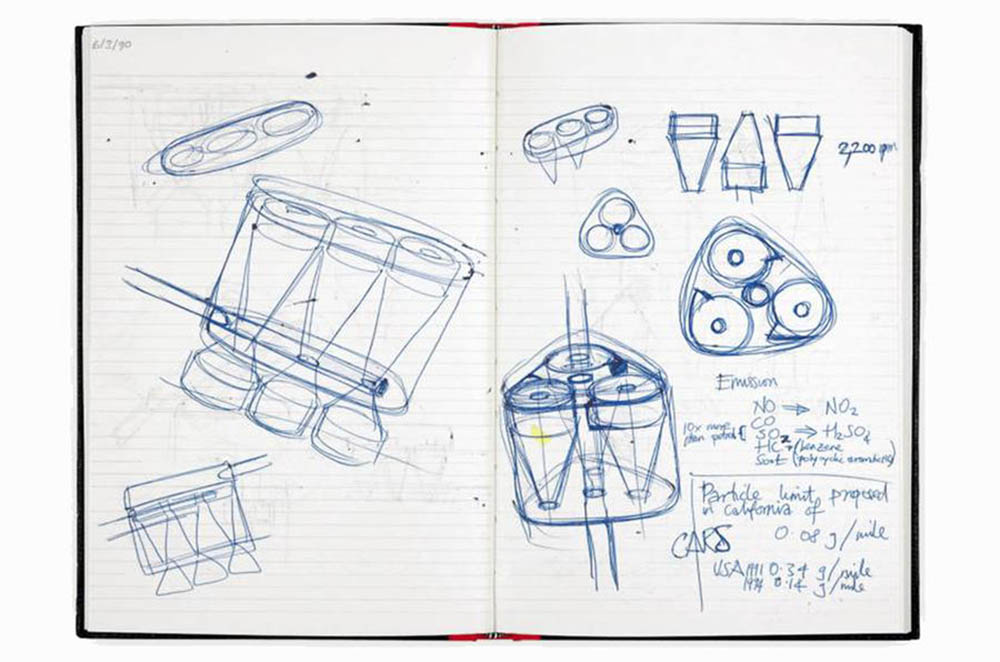 6/3/90
2,200 rpm
Emission
NO ⇒ NO2
CO
10x more
than petrol {
SO2 ⇒ H2SO4
HC → (benzene
Soot (polycyclic aromatics)
Particle limit proposed
in California of
0.08 g/mile
CARS
USA 1991 0.34 g/mile
1994 0.14 g/mile